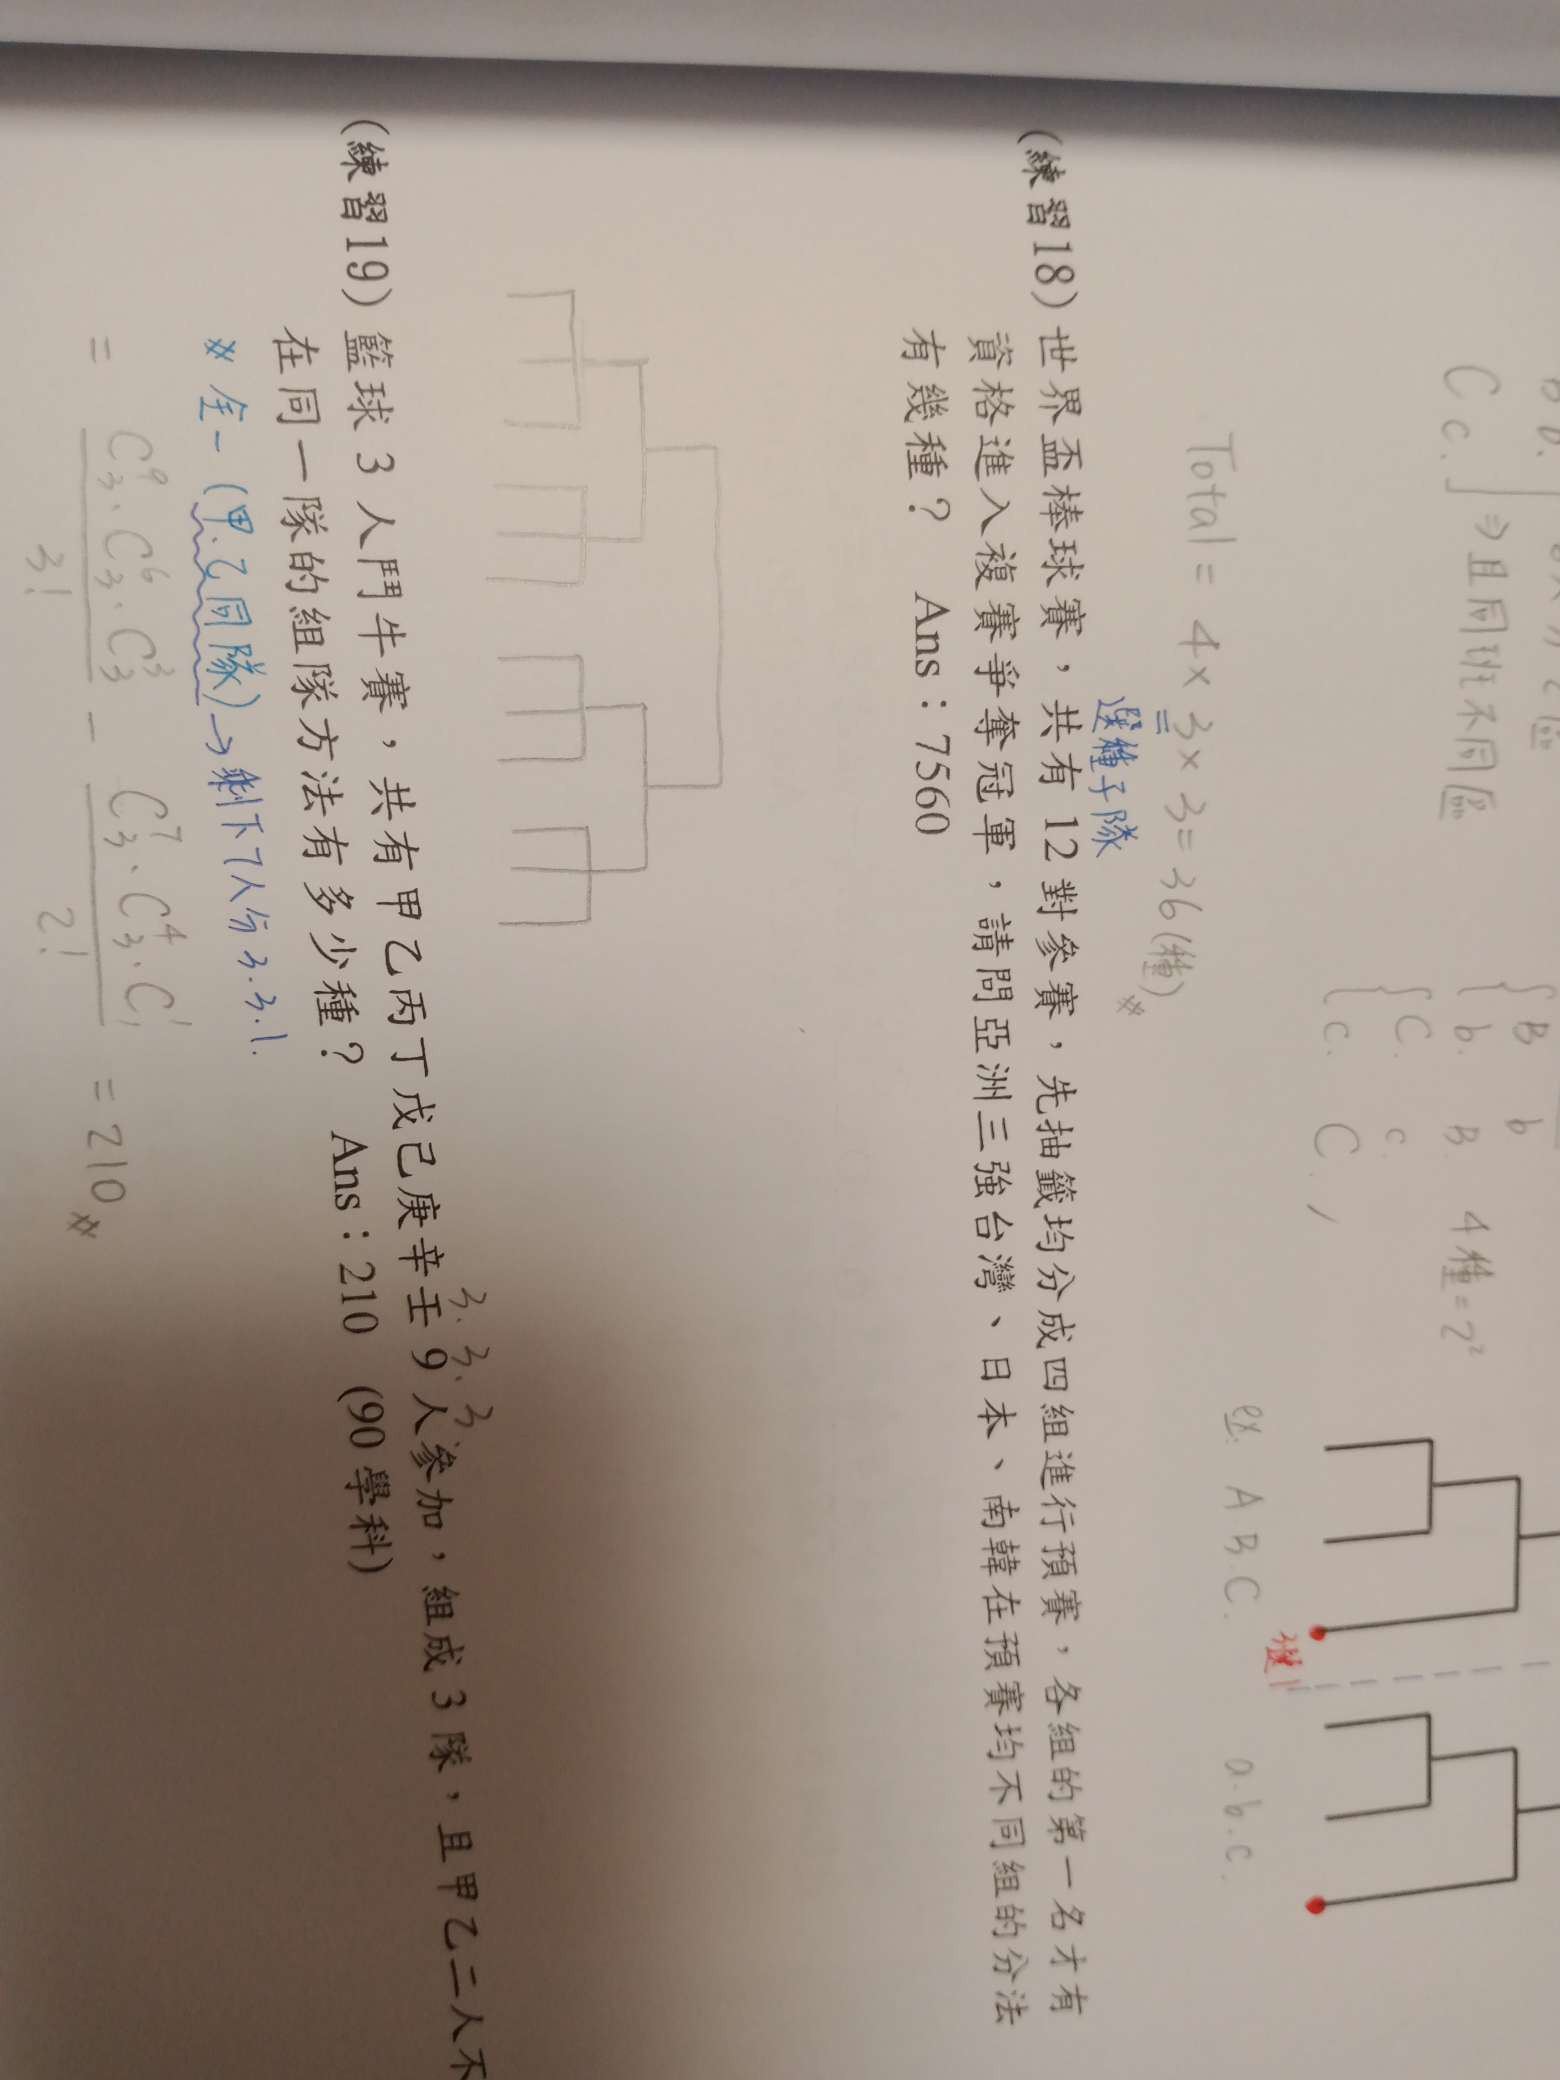 C c.
⇒且同班不同區
B
b. b
B. 4種=2²
C. c.
c. C,
Total = 4×3×3=36(種)
選種子隊
ex. A B.C. a.b.c.
(練習18) 世界盃棒球賽，共有 12 對參賽，先抽籤均分成四組進行預賽，各組的第一名才有
資格進入複賽爭奪冠軍，請問亞洲三強台灣、日本、南韓在預賽均不同組的分法
有幾種？ Ans：7560
3.3.3
(練習19) 籃球 3 人鬥牛賽，共有甲乙丙丁戊己庚辛壬 9 人參加，組成 3 隊，且甲乙二人不
在同一隊的組隊方法有多少種？ Ans：210 (90 學科)
※ 全－(甲.乙同隊)→剩下7人分3.3.1.
= C⁹₃.C⁶₃.C³₃/3! － C⁷₃.C⁴₃.C¹₁/2! =210